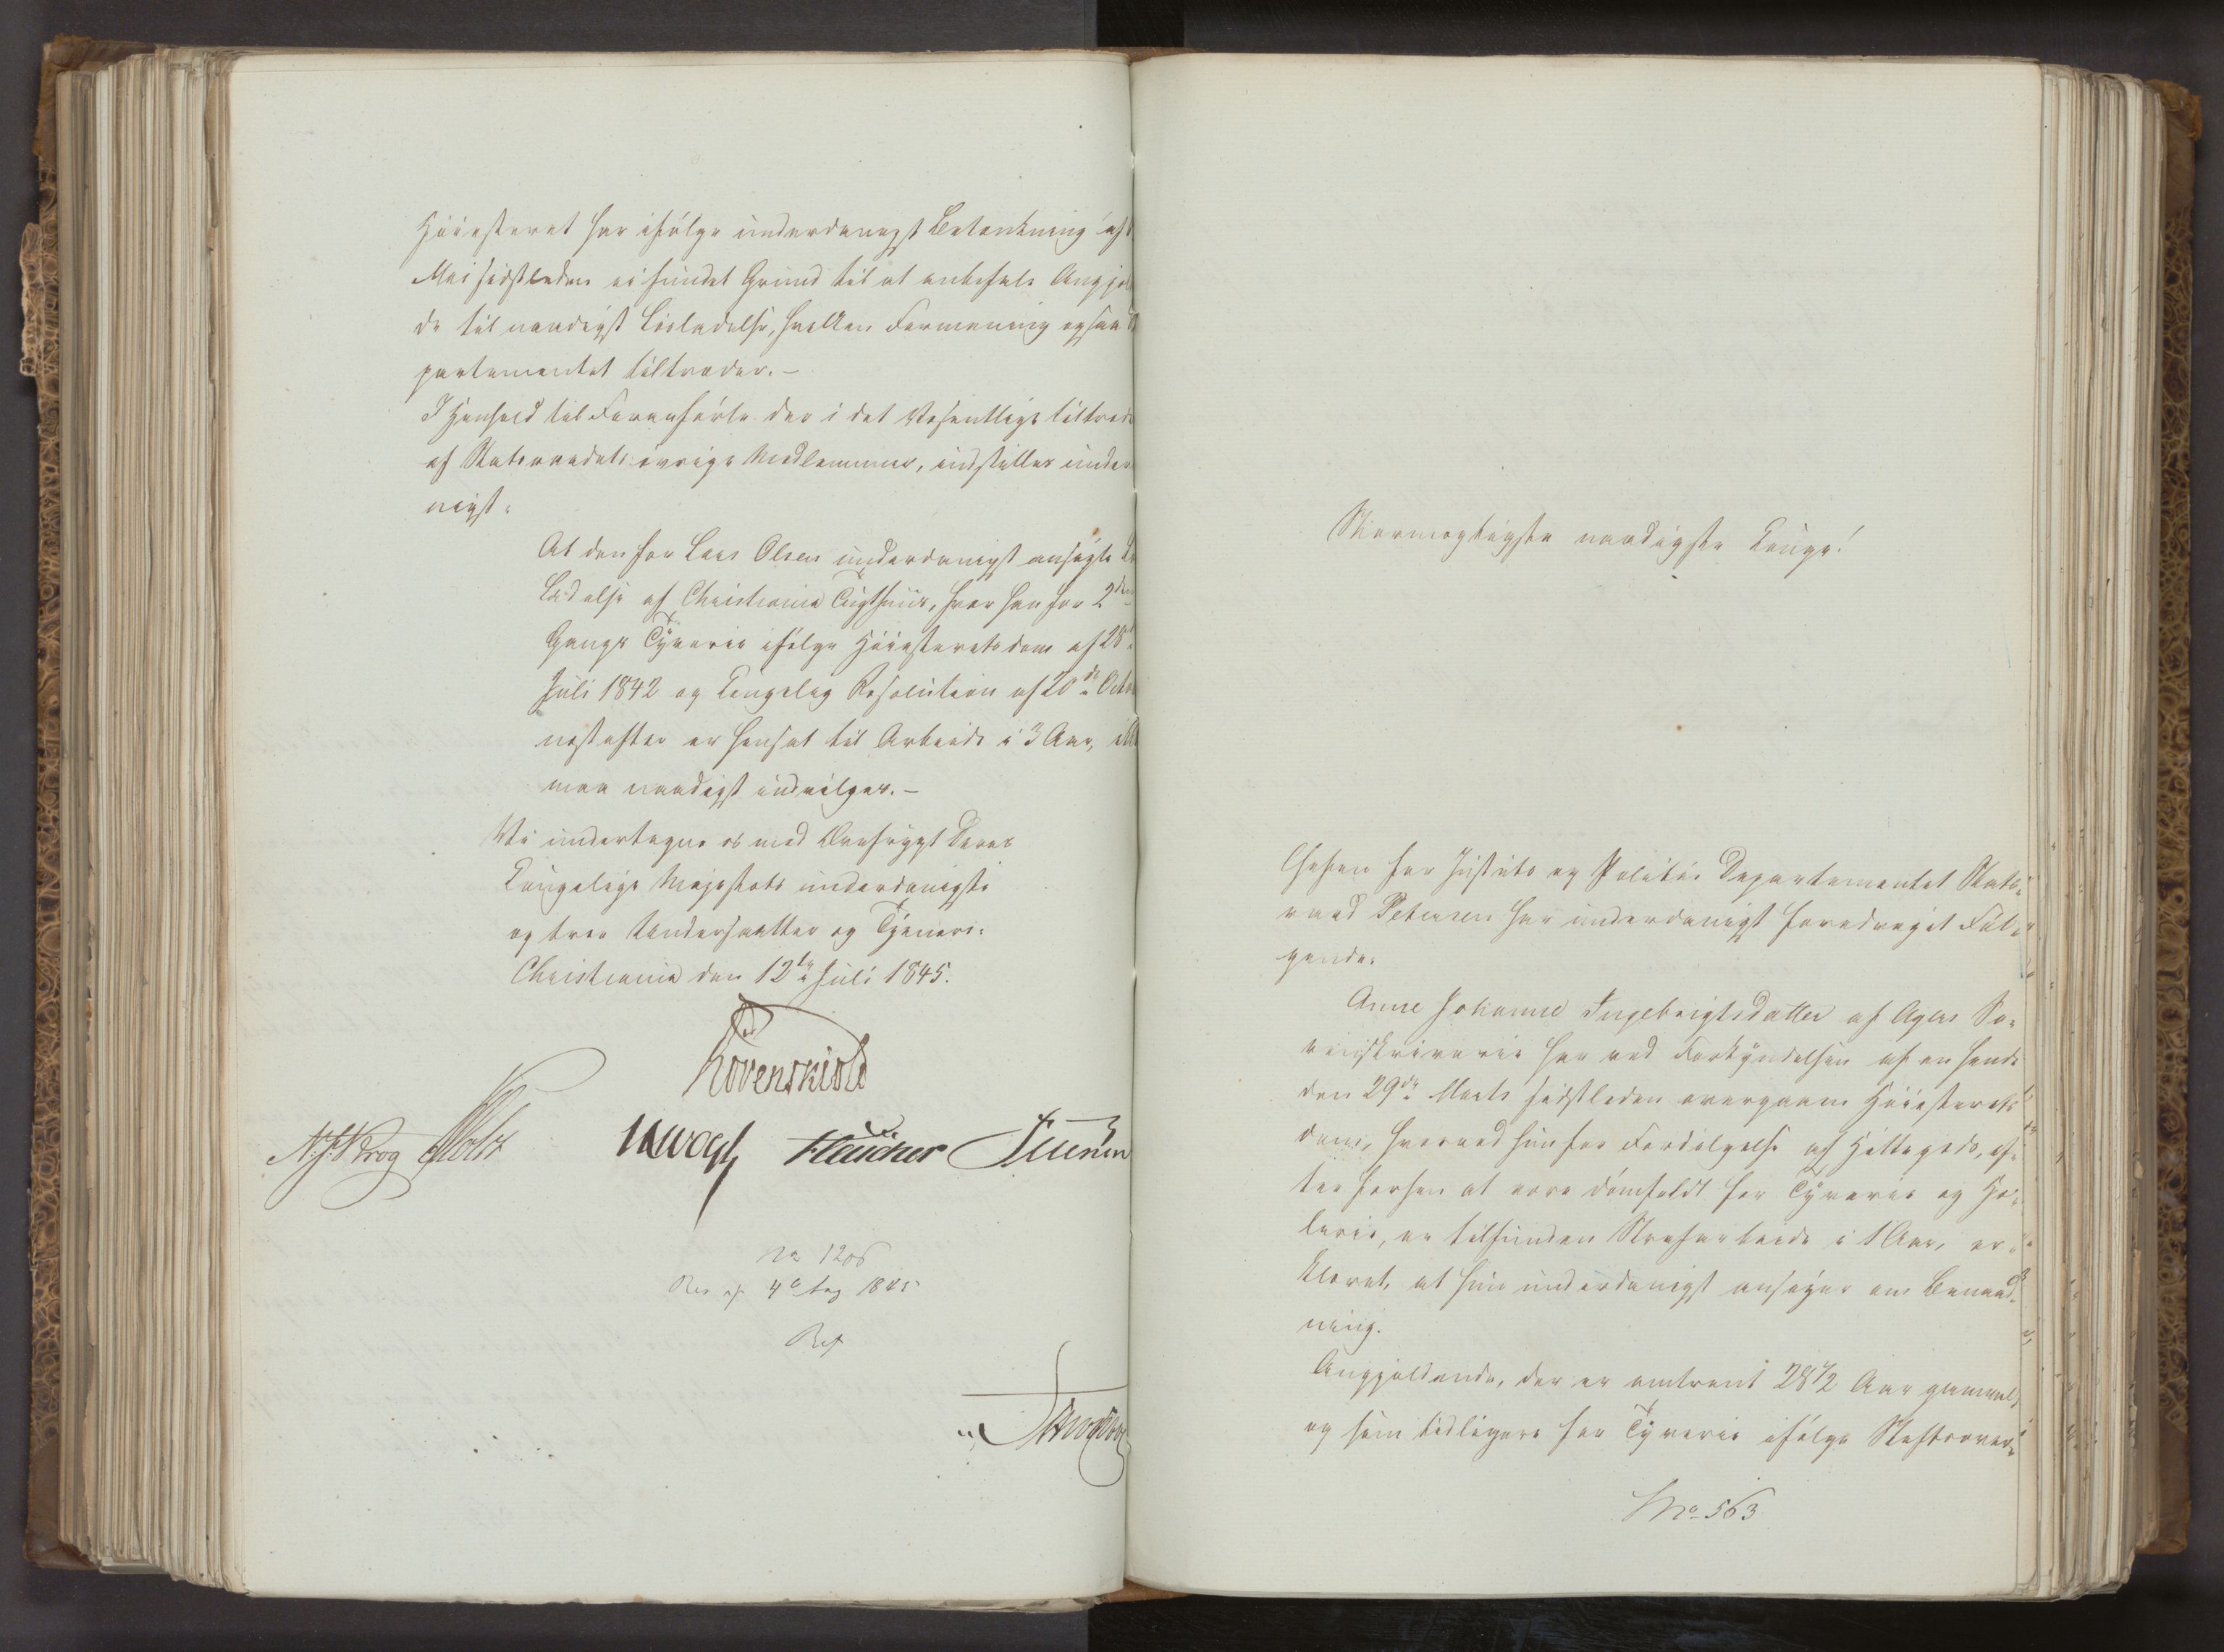 Høiesteret har ifølge underdanigst Betænkning af
Mai sidstleden ei fundet Grund til at anbefale Angjel
de til naadigst Løsladelse, hvilken Formening ogsaa
partementet tiltræder. –
I Henhold til Foranførte der i det Væsentlige tiltrædes
af Statsraadets øvrige Medlemmer, indstilles under
nigst:
At den for Lars Olsen underdanigst ansøgte
Ladelse af Christiania Tugthuus, hvor han for 2den
Gangs Tyverie ifølge Høiesteretsdom af 28
Juli 1842 og Kongelig Resolution af 20de Octo
næstefter er hensat til Arbeide i 3 Aar, ikke
maa naadigst indvilges. –
Vi undertegne os med Ærefrygt Deres
Kongelige Majestæts underdanigste
og troe Undersaatter og Tjenere.
Christiania den 12te Juli 1845.
Løvenskiold
N. J. Krog Holst Vogt Fleischer Petersen
No 1206
Res af 4de Aug 1845
Ref
Stormægtigste naadigste Konge!
Chefen for Justits og Politie Departementet Stats-
raad Petersen har underdanigst foredraget Føl-
gende.
Anne Johanne Ingebrigtsdatter af Agers So-
renskriverie har ved Forkyndelsen af en hende
den 29de Marts sidstleden overgaaen Høiesterets
dom, hvorved hun for Fordølgelse af Hittegods, ef-
ter forhen at være domfældt for Tyverie og Hæ-
lerie, er tilfunden Strafarbeide i 1 Aar, er-
klæret, at hun underdanigst ansøger om Benaad-
ning.
Angjældende, der er omtrent 28 1/2 Aar gammel,
og som tidligere for Tyverie ifølge Stiftsover-
No 563